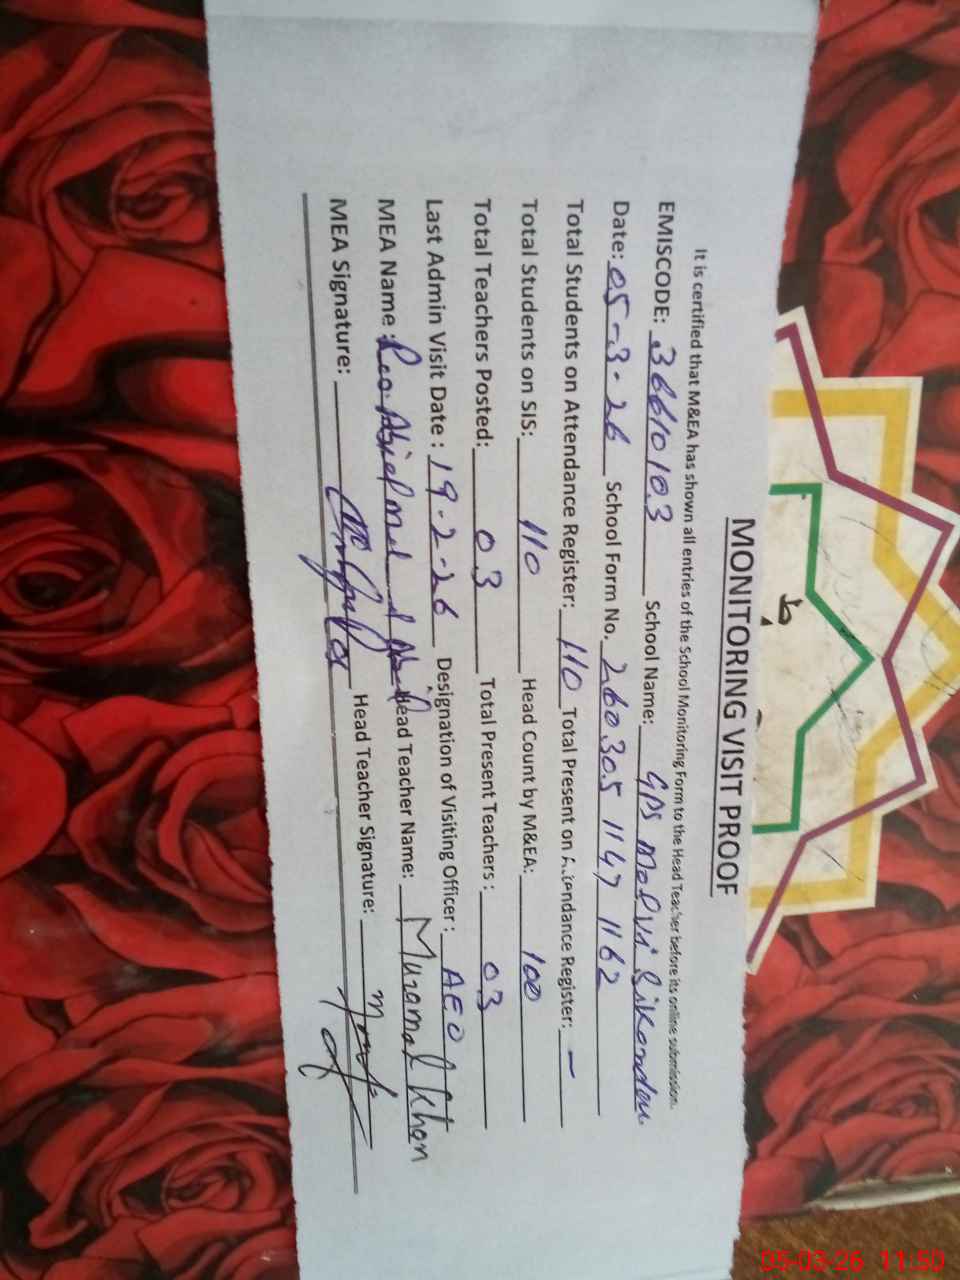 MONITORING VISIT PROOF
It is certified that M&EA has shown all entries of the School Monitoring Form to the Head Teacher before its online submission.
EMISCODE: 36610103 School Name: GPS Molvi Sikandar
Date: 05-3-26 School Form No. 260305 1147 1162
Total Students on Attendance Register: 110 Total Present on Attendance Register: -
Total Students on SIS: 110 Head Count by M&EA: 100
Total Teachers Posted: 03 Total Present Teachers: 03
Last Admin Visit Date: 19-2-26 Designation of Visiting Officer: AEO
MEA Name: Head Teacher Name: Muzamal Khan
MEA Signature: Head Teacher Signature:
05-03-26 11:50